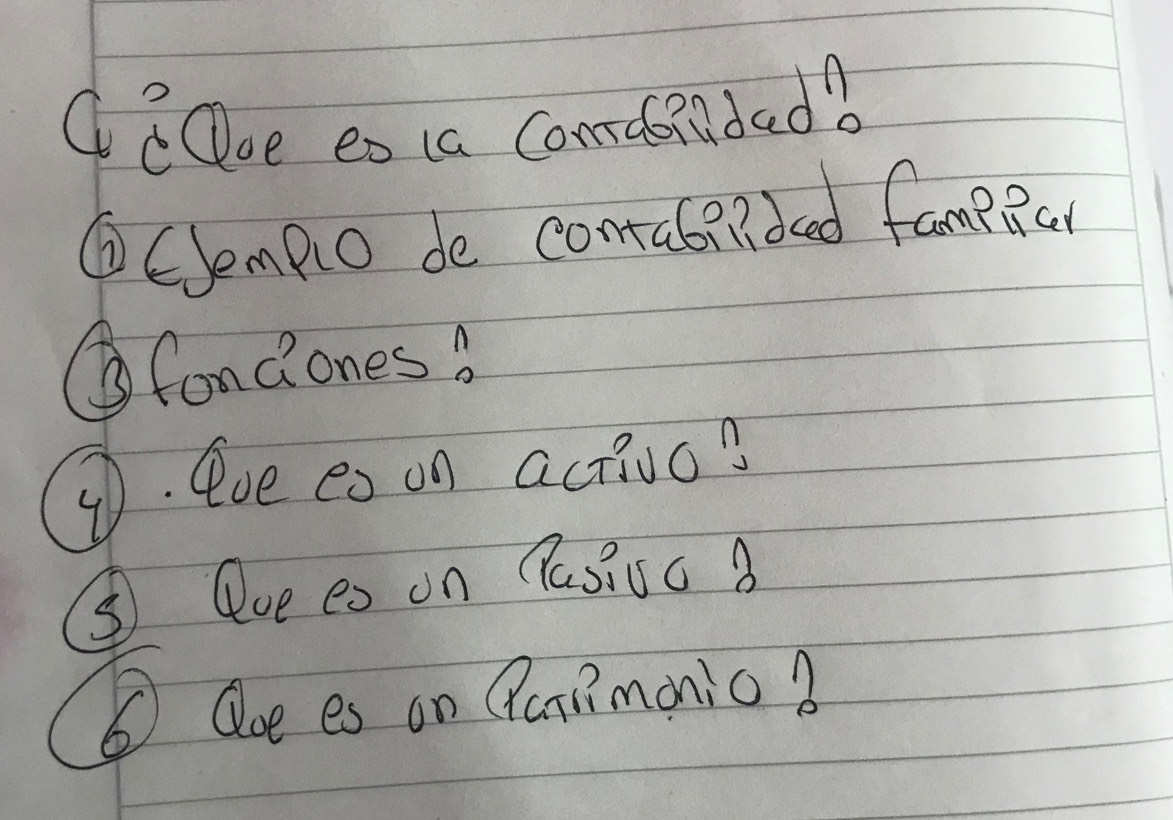 1. ¿Que es la Contabilidad?
② Ejemplo de contabilidad familiar
③ funciones?
④ . Que es un activo?
⑤ Que es un Pasivo?
⑥ Que es un Patrimonio?